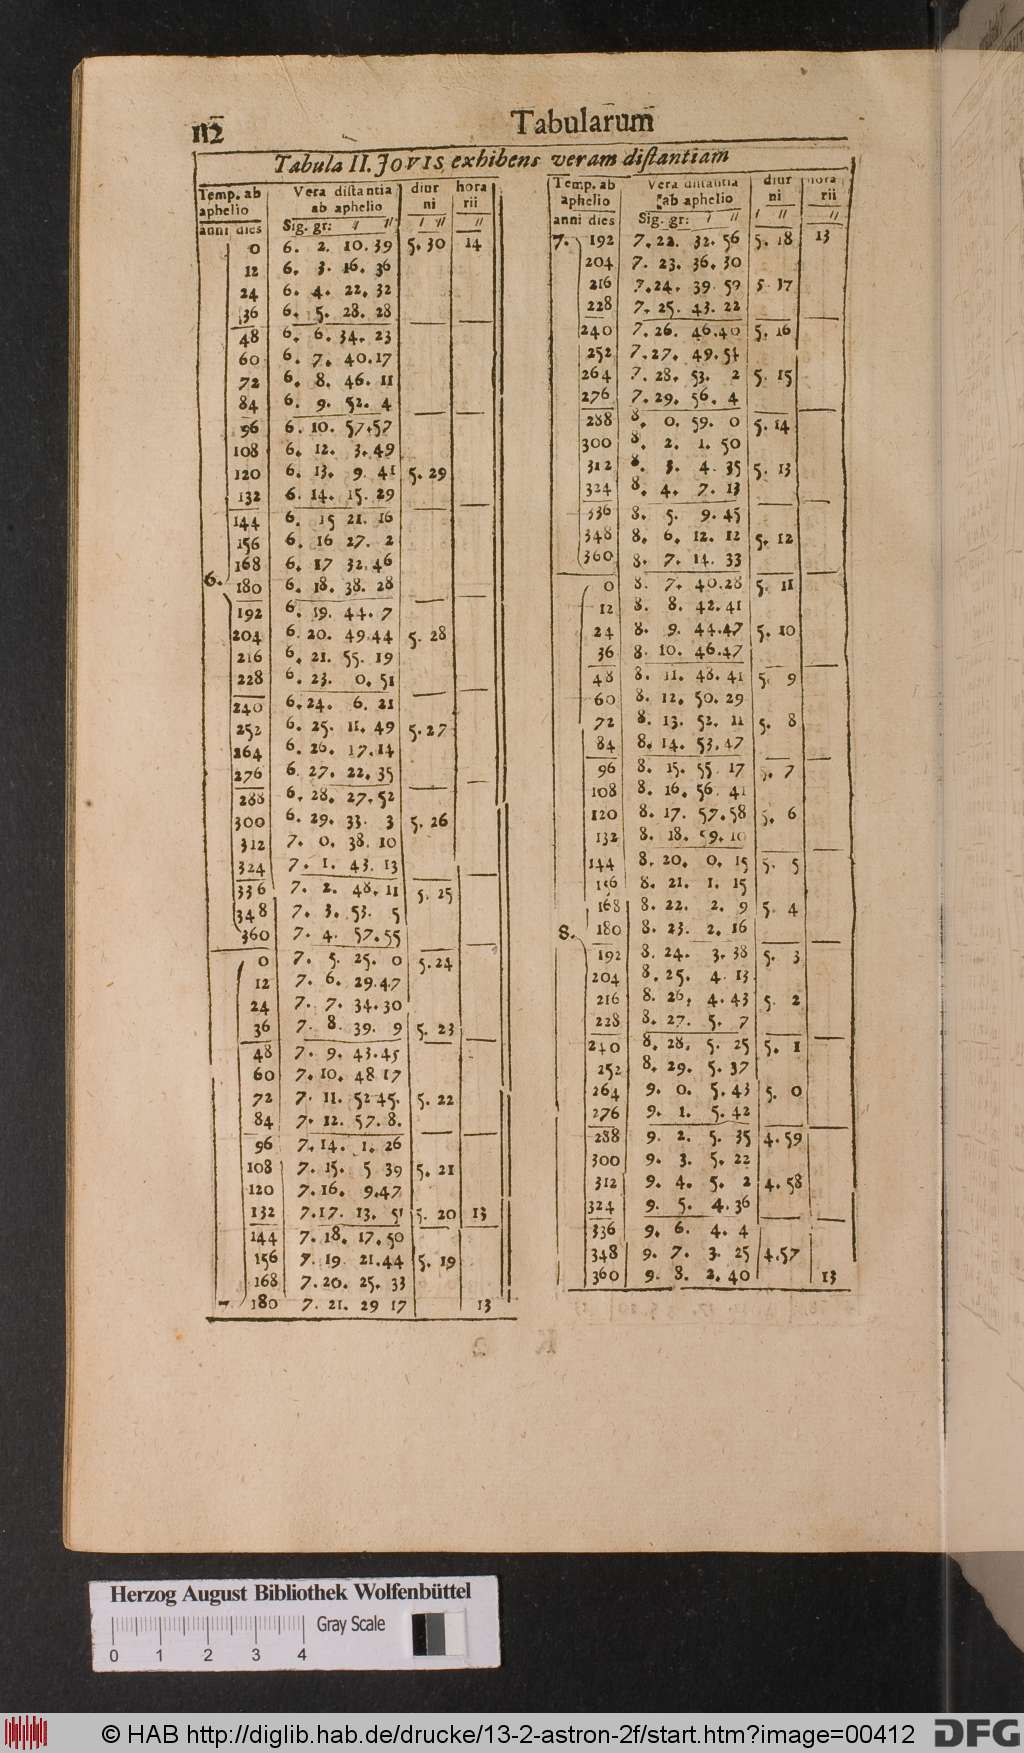 112 Tabularum
Tabula II. JOVIS exhibens veram distantiam
Temp. ab aphelio | Vera distantia ab aphelio | diurni | horarii
anni dies | Sig. gr: ′ ″ | ′ ″ | ″
0 6. 2. 10. 39 5. 30 14
12 6. 3. 16. 36
24 6. 4. 22. 32
36 6. 5. 28. 28
48 6. 6. 34. 23
60 6. 7. 40. 17
72 6. 8. 46. 11
84 6. 9. 52. 4
96 6. 10. 57. 57
108 6. 12. 3. 49
120 6. 13. 9. 41 5. 29
132 6. 14. 15. 29
144 6. 15 21. 16
156 6. 16 27. 2
168 6. 17 32. 46
6. 180 6. 18. 38. 28
192 6. 19. 44. 7
204 6. 20. 49. 44 5. 28
216 6. 21. 55. 19
228 6. 23. 0. 51
240 6. 24. 6. 21
252 6. 25. 11. 49 5. 27
264 6. 26. 17. 14
276 6. 27. 22. 35
288 6. 28. 27. 52
300 6. 29. 33. 3 5. 26
312 7. 0. 38. 10
324 7. 1. 43. 13
336 7. 2. 48. 11 5. 25
348 7. 3. 53. 5
360 7. 4. 57. 55
0 7. 5. 25. 0 5. 24
12 7. 6. 29. 47
24 7. 7. 34. 30
36 7. 8. 39. 9 5. 23
48 7. 9. 43. 45
60 7. 10. 48 17
72 7. 11. 52 45. 5. 22
84 7. 12. 57. 8.
96 7. 14. 1. 26
108 7. 15. 5 39 5. 21
120 7. 16. 9. 47
132 7. 17. 13. 51 5. 20 13
144 7. 18. 17. 50
156 7. 19 21. 44 5. 19
168 7. 20. 25. 33
7. 180 7. 21. 29 17 13
Temp. ab aphelio | Vera distantia ab aphelio | diurni | horarii
anni dies | Sig. gr: ′ ″ | ′ ″ | ″
7. 192 7. 22. 32. 56 5. 18 13
204 7. 23. 36. 30
216 7. 24. 39. 59 5. 17
228 7. 25. 43. 22
240 7. 26. 46. 40 5. 16
252 7. 27. 49. 54
264 7. 28. 53. 2 5. 15
276 7. 29. 56. 4
288 8. 0. 59. 0 5. 14
300 8. 2. 1. 50
312 8. 3. 4. 35 5. 13
324 8. 4. 7. 13
336 8. 5. 9. 45
348 8. 6. 12. 12 5. 12
360 8. 7. 14. 33
0 8. 7. 40. 28 5. 11
12 8. 8. 42. 41
24 8. 9. 44. 47 5. 10
36 8. 10. 46. 47
48 8. 11. 48. 41 5. 9
60 8. 12. 50. 29
72 8. 13. 52. 11 5. 8
84 8. 14. 53. 47
96 8. 15. 55 17 5. 7
108 8. 16. 56. 41
120 8. 17. 57. 58 5. 6
132 8. 18. 59. 10
144 8. 20. 0. 15 5. 5
156 8. 21. 1. 15
168 8. 22. 2. 9 5. 4
8. 180 8. 23. 2. 16
192 8. 24. 3. 38 5. 3
204 8. 25. 4. 13
216 8. 26. 4. 43 5. 2
228 8. 27. 5. 7
240 8. 28. 5. 25 5. 1
252 8. 29. 5. 37
264 9. 0. 5. 43 5. 0
276 9. 1. 5. 42
288 9. 2. 5. 35 4. 59
300 9. 3. 5. 22
312 9. 4. 5. 2 4. 58
324 9. 5. 4. 36
336 9. 6. 4. 4
348 9. 7. 3. 25 4. 57
360 9. 8. 2. 40 13
Herzog August Bibliothek Wolfenbüttel
Gray Scale
0 1 2 3 4
© HAB http://diglib.hab.de/drucke/13-2-astron-2f/start.htm?image=00412 DFG